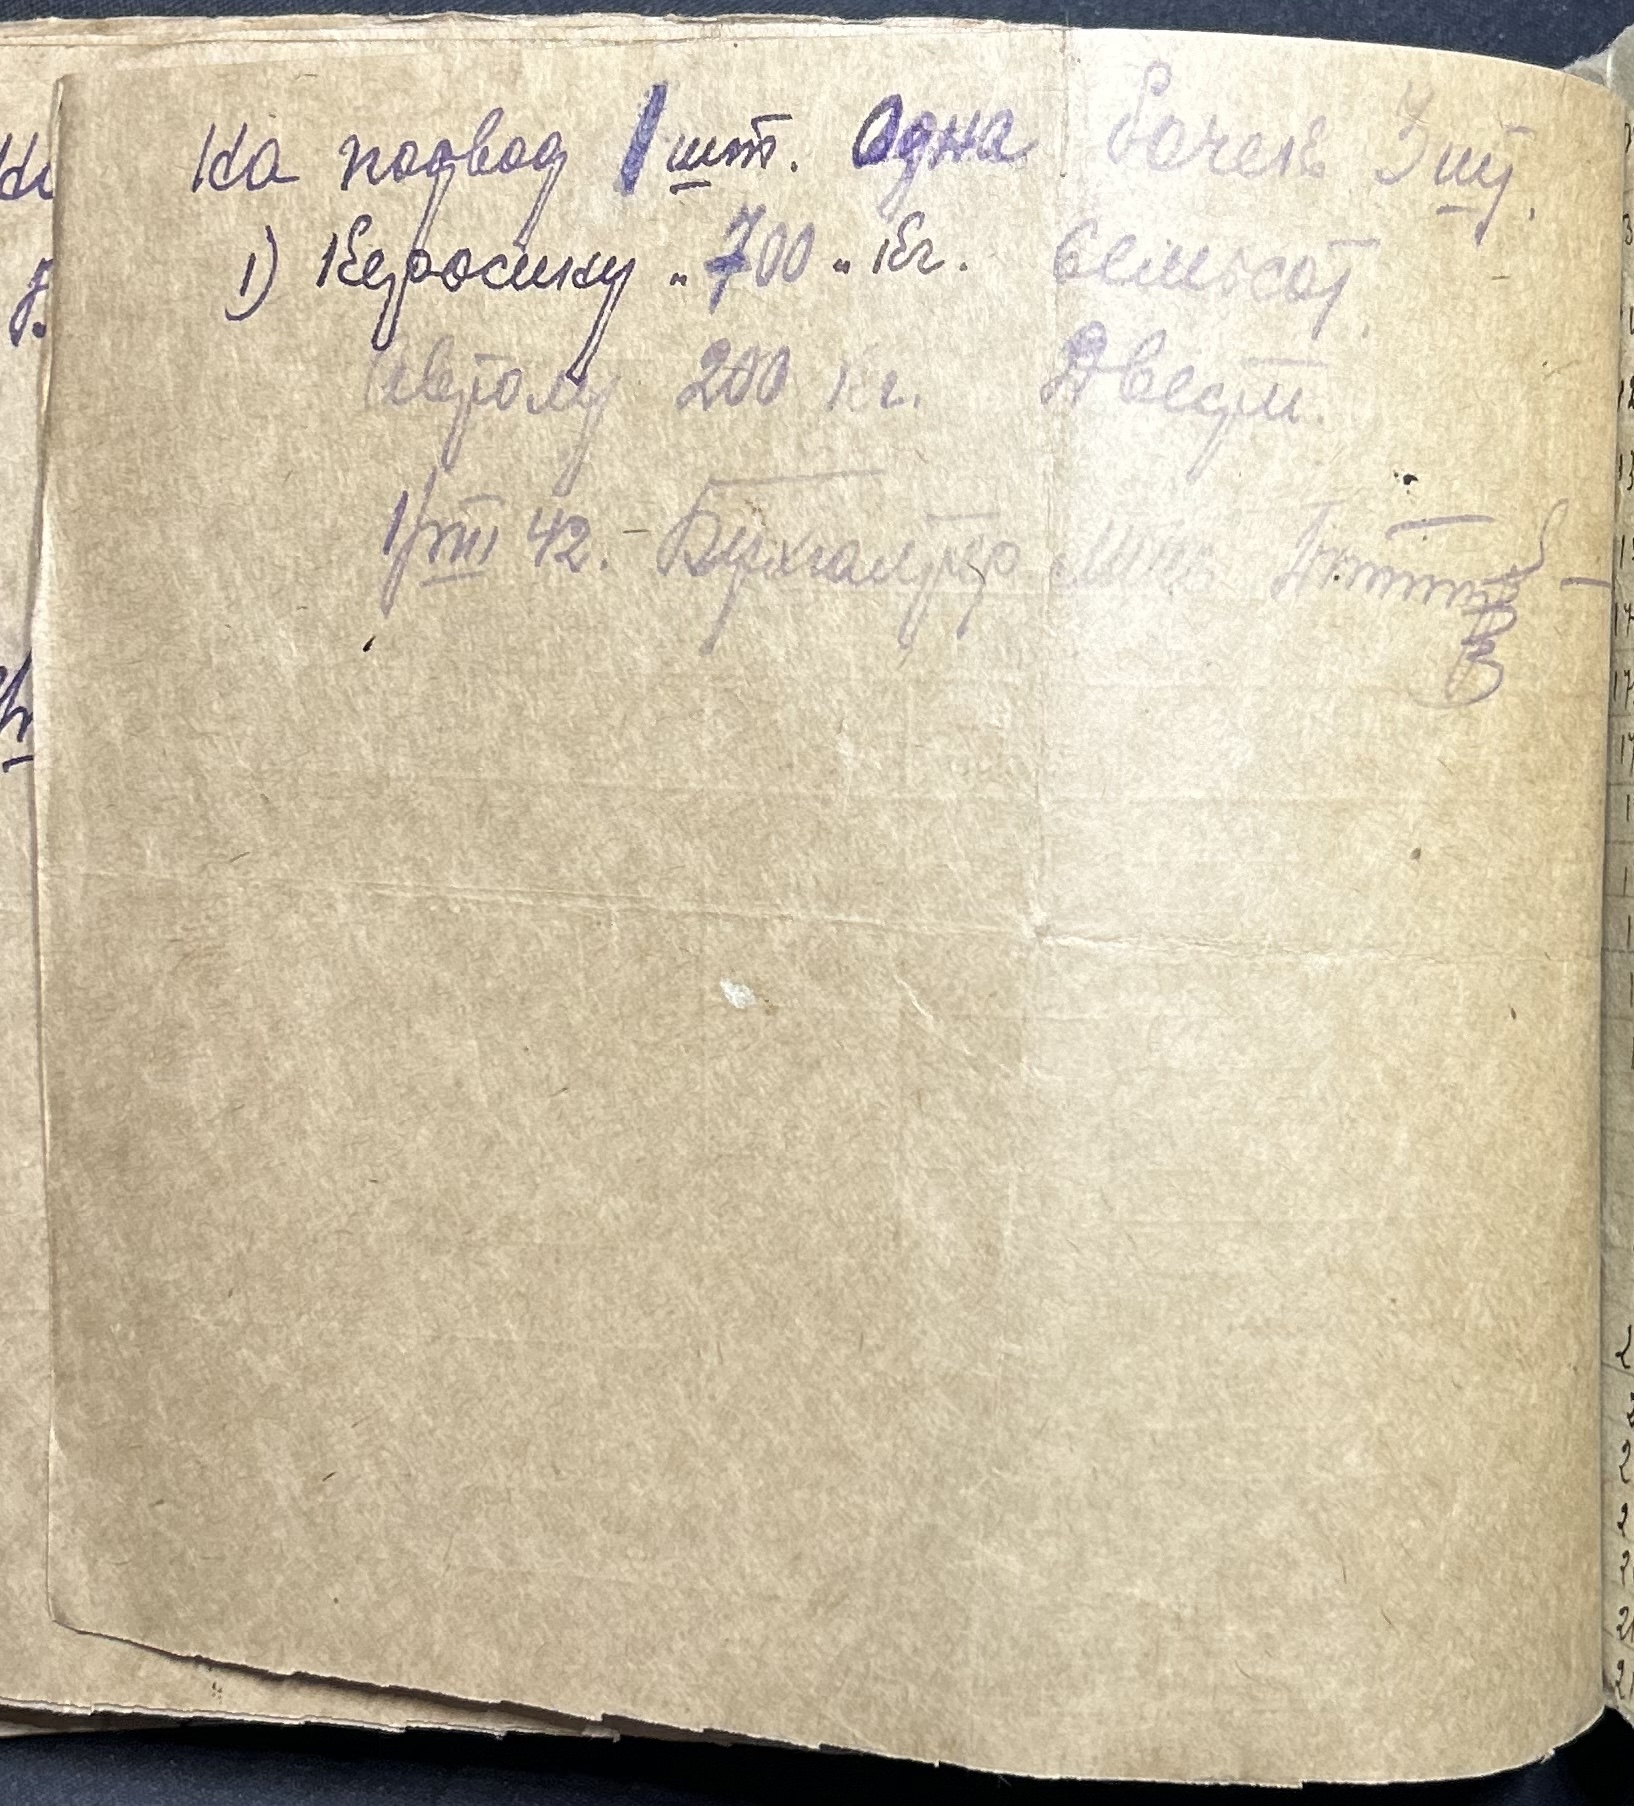 На подвод 1 шт. Одна бочек 3 шт.
1) Керосину „700„ Кг. Семьсот.
Автолу 200 Кг. Двести.
1/VIII 42. - Бухгалтер